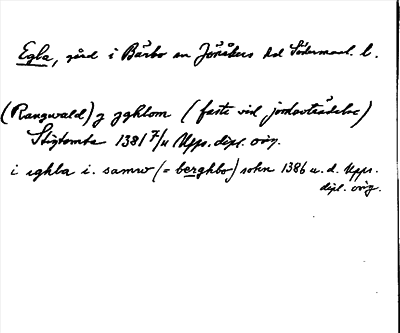 Egla, gård i Bärbo sn Jönåkers hd Södermanl. l.
(Rangwald) j ykhlom (faste vid jordaöverlåtelse)
Stigtomta 1381 7/11 Upps. dipl. orig.
i eghla i. samw (= berghbo) sokn 1386 u. d. Upps.
dipl. orig.